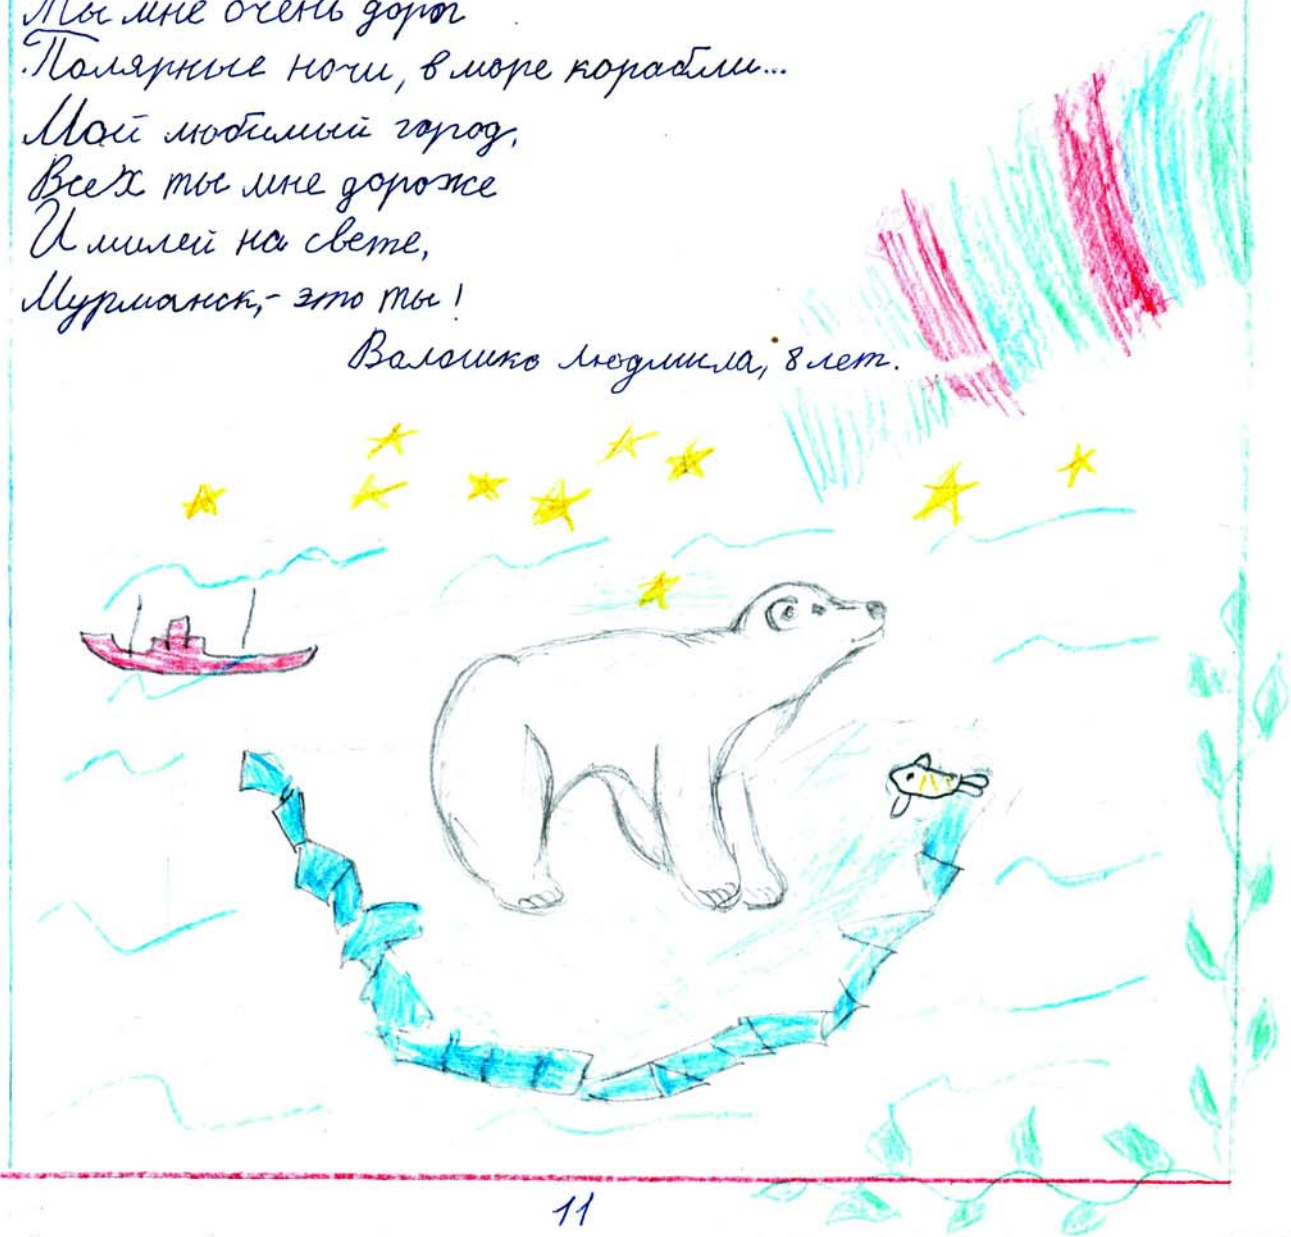 Ты мне очень дорог
Полярные ночи, в море корабли...
Мой любимый город,
Всех ты мне дороже
И милей на свете,
Мурманск,- это ты!
Валошко Людмила, 8 лет.
11